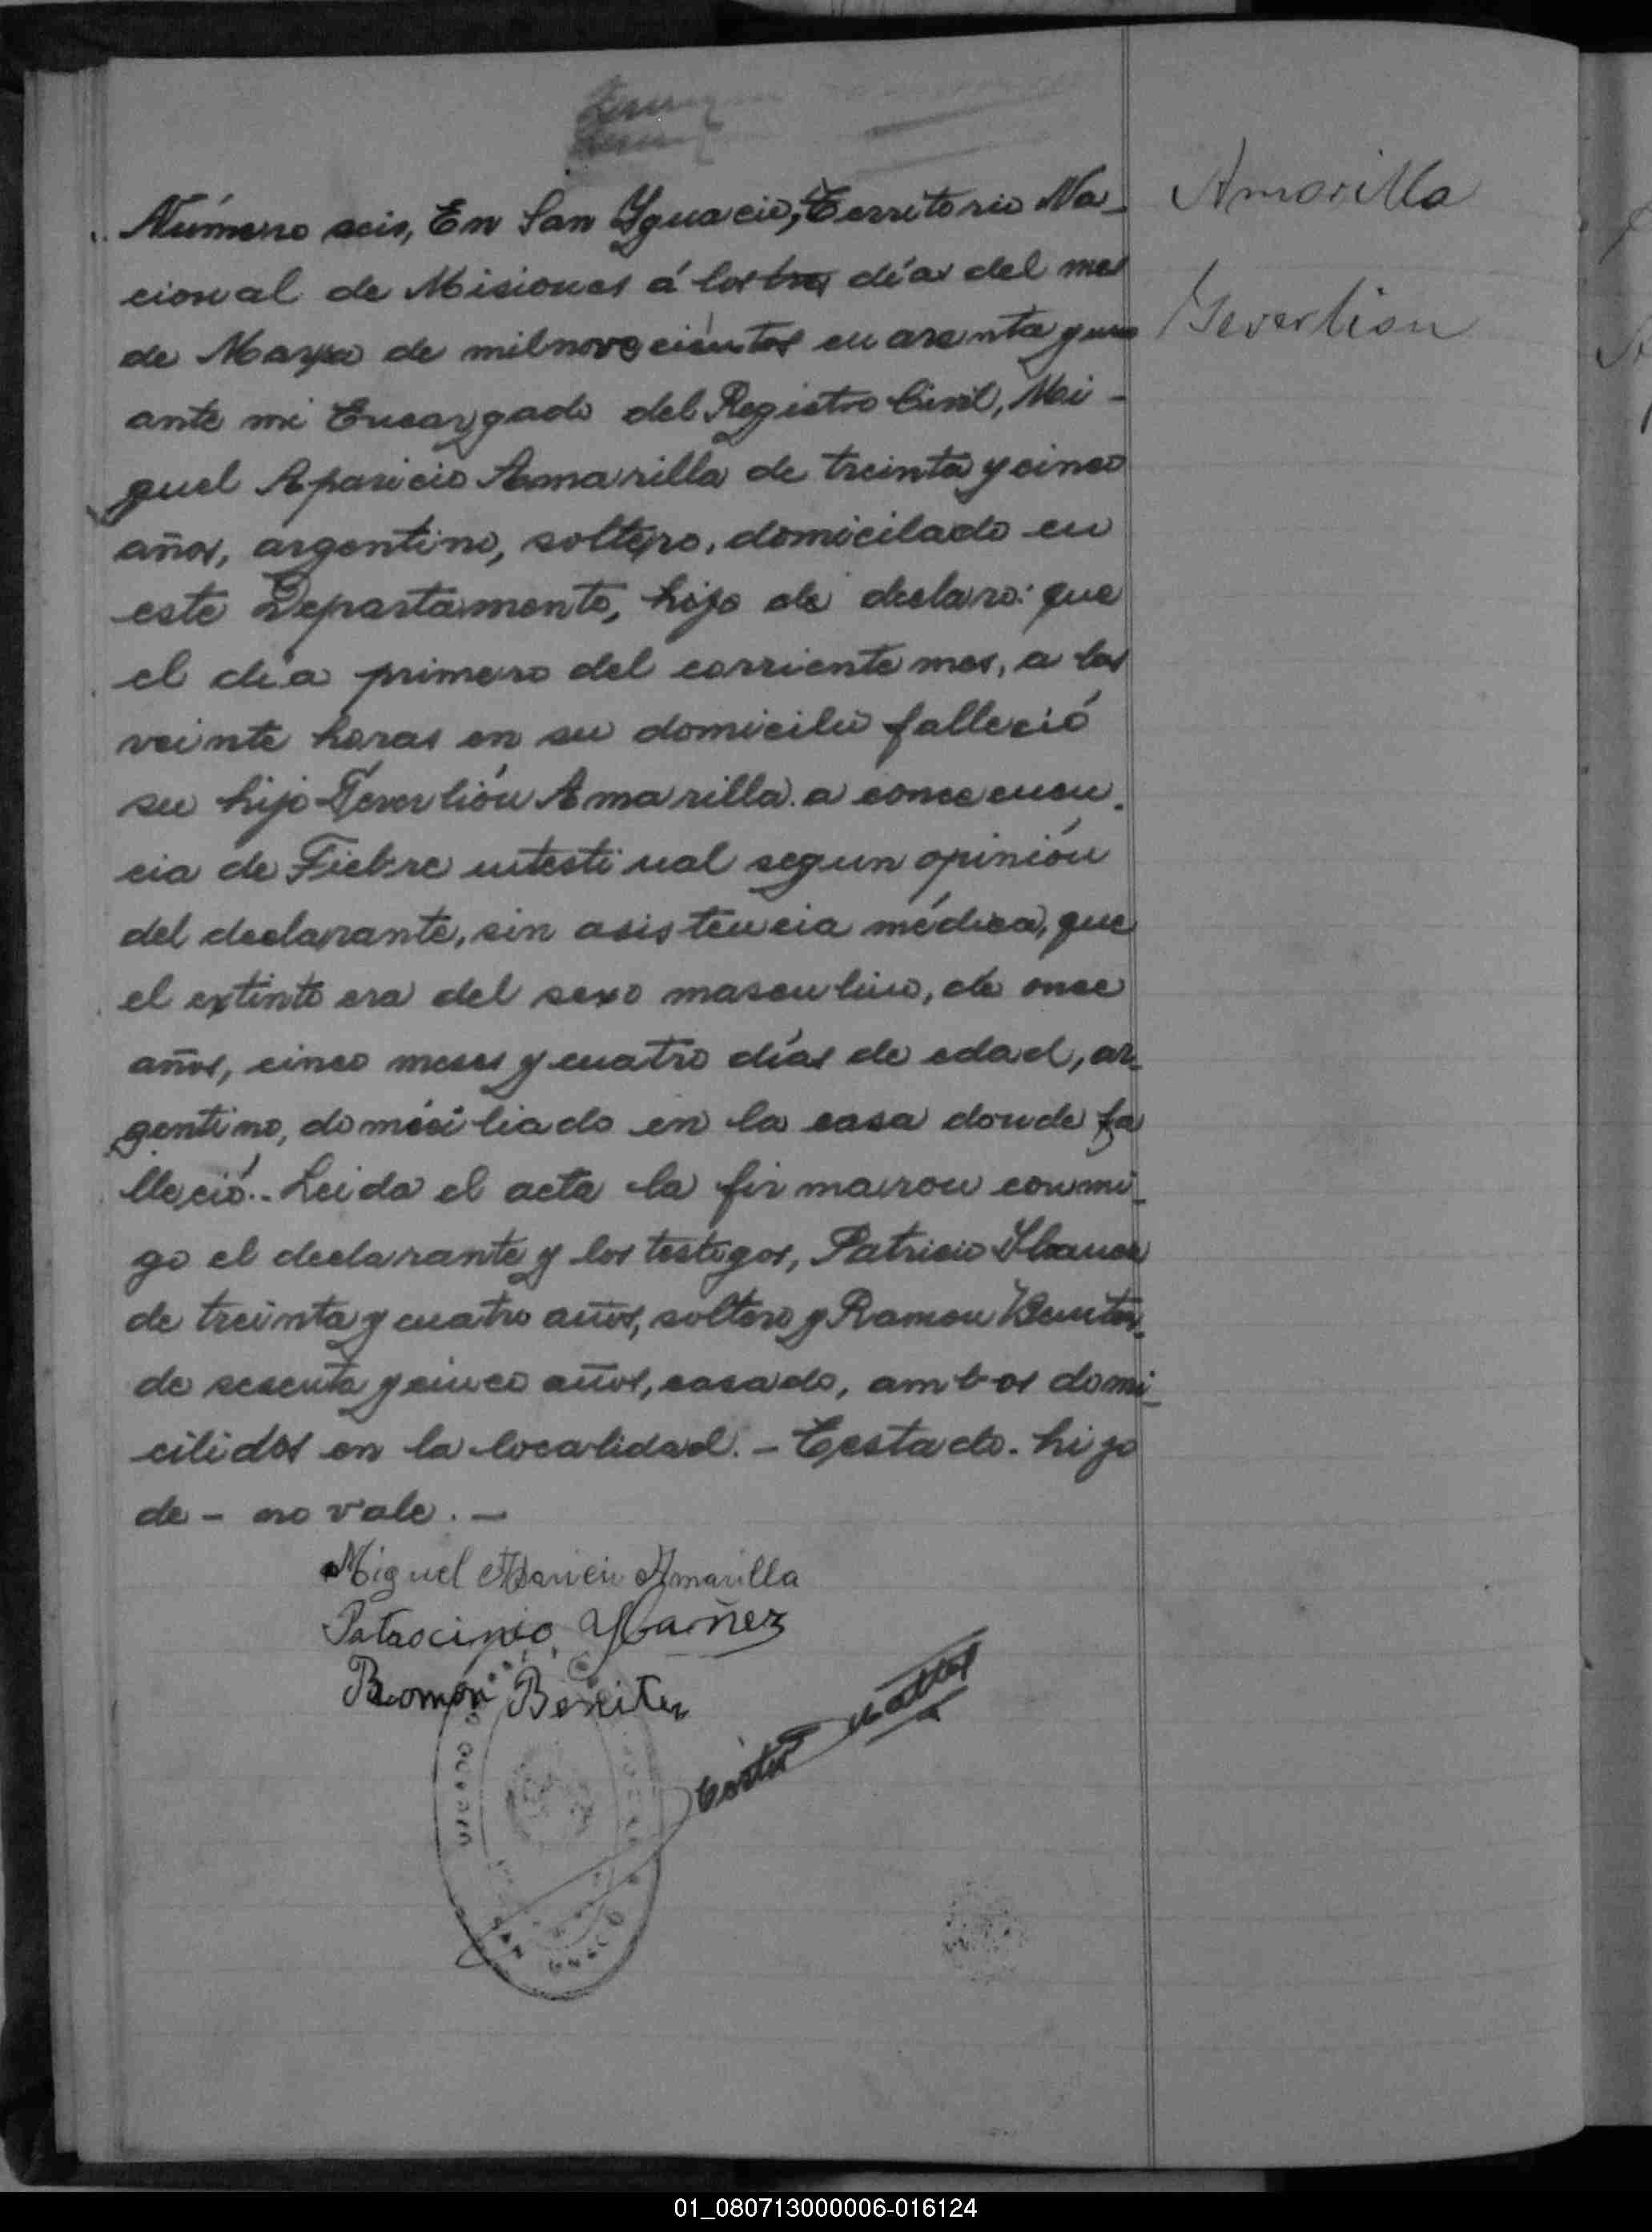 Número seis, En San Ygnacio, Territorio Na-
cional de Misiones á los tres días del mes
de Marzo de mil novecientos cuarenta y uno
ante mi Encargado del Registro Civil, Mi-
guel Aparicio Amarilla de treinta y cinco
años, argentino, soltero, domicilado en
este Departamento, hijo de declaro: que
el día primero del corriente mes, a las
veinte horas en su domicilio falleció
su hijo Amarilla a consecuen-
cia de Fiebre intestinal segun opinión
del declarante, sin asistencia médica, que
el extinto era del sexo masculino, de once
años, cinco meses y cuatro días de edad, ar-
gentino, domiciliado en la casa donde fa
lleció.. Leida el acta la firmaron conmi-
go el declarante y los testigos, Patricio
de treinta y cuatro años, soltero y Ramon Benitez
de sesenta y cinco años, casado, ambos domi-
cilidos en la localidad. - Testado. hijo
de - no vale. -
Miguel Aparicio Amarilla
Patrocinio Ybañez
Ramón Benitez
SAN IGNACIO
Amarilla
01_080713000006-016124